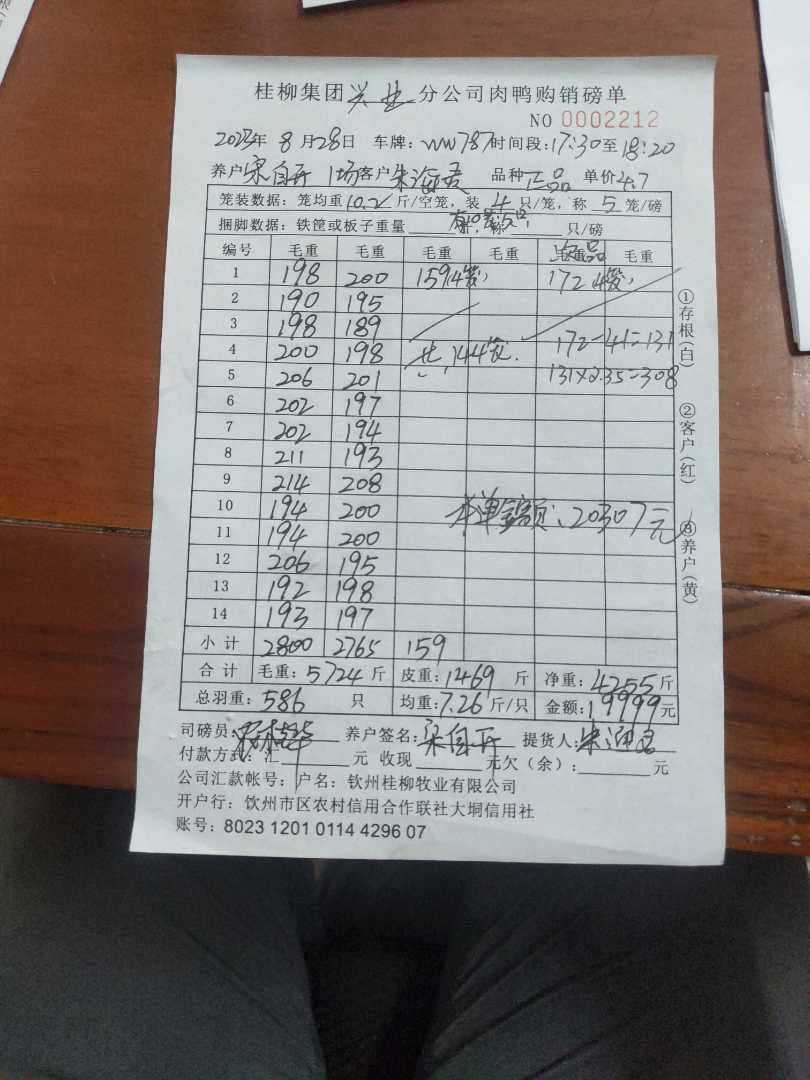 桂柳集团兴业分公司肉鸭购销磅单
NO 0002212
2023年8月28日 车牌:WW787时间段:17:30至18:20
养户 自开 1场客户朱海 品种正品 单价4.7
笼装数据:笼均重10.2斤/空笼,装4只/笼,称5笼/磅
捆脚数据:铁筐或板子重量 称 只/磅
编号 毛重 毛重 毛重 毛重 毛重
1 198 200 159(4笼) 172(4笼)
2 190 195
3 198 189
4 200 198 共144笼. 172-41=131
5 206 201 131×2.35=308
6 202 197
7 202 194
8 211 193
9 214 208
10 194 200 本单金额:20307元
11 194 200
12 206 195
13 192 198
14 193 197
小计 2800 2765 159
合计 毛重:5724斤 皮重:1469斤 净重:4255斤
总羽重:586只 均重:7.26斤/只 金额:19999元
司磅员: 养户签名: 自开 提货人:朱海
付款方式:汇 元 收现 元欠(余): 元
公司汇款帐号:户名:钦州桂柳牧业有限公司
开户行:钦州市区农村信用合作联社大垌信用社
账号:8023 1201 0114 4296 07
①存根(白) ②客户(红) ③养户(黄)